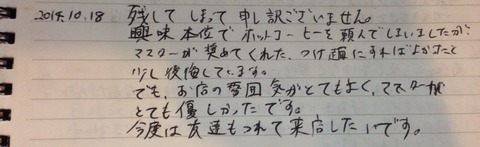 2014.10.18 残してしまって申し訳ございません。
興味本位でホットコーヒーを頼んでしまいましたが
マスターが奨めてくれた、つけ麺にすればよかったと
少し後悔しています。
でも、お店の雰囲気がとてもよく、マスターが
とても優しかったです。
今度は友達もつれて来店したいです。